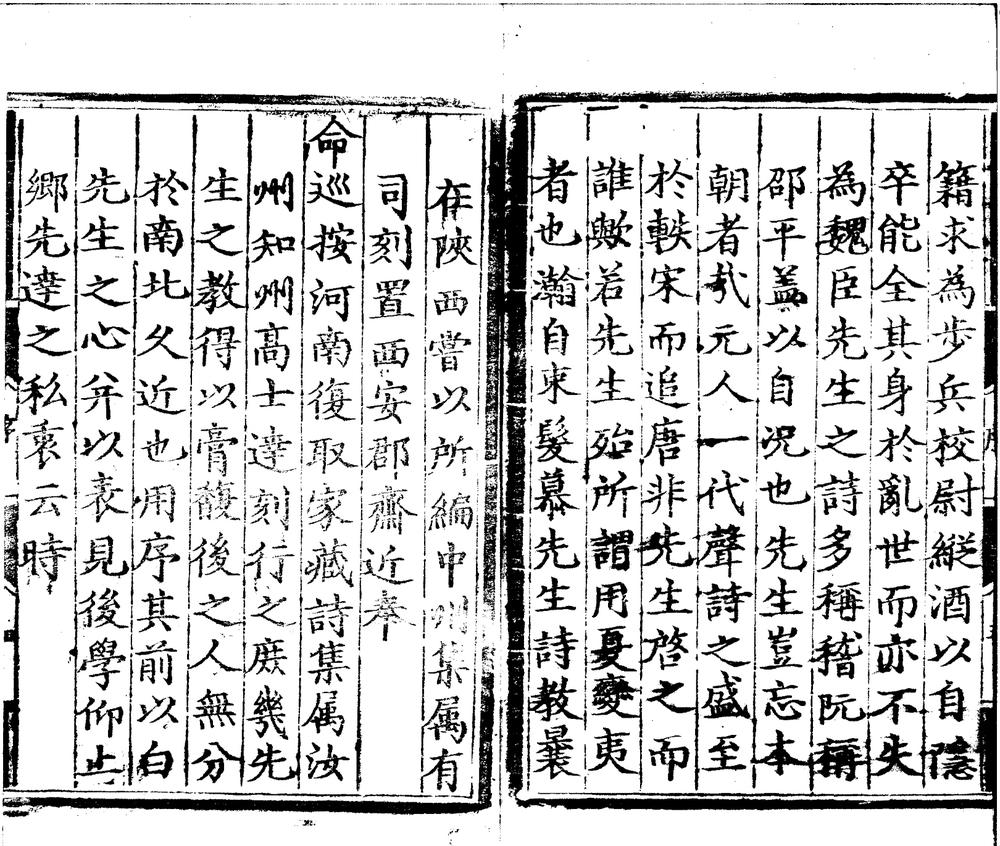 籍求為步兵校尉縱酒以自隱
卒能全其身於亂世而亦不失
為魏臣先生之詩多稱稽阮稱
邵平盖以自况也先生豈忘本
朝者㢤元人一代聲詩之盛至
於軼宋而追唐非先生啓之而
誰歟若先生殆所謂用夏變夷
者也瀚自束髮慕先生詩教曩
在陝西嘗以所編中州集属有
司刻置西安郡齋近奉
命巡按河南復取家藏詩集属汝
州知州高士達刻行之庶幾先
生之教得以膏馥後之人無分
於南北久近也用序其前以白
先生之心并以表見後學仰止
鄉先達之私衷云時